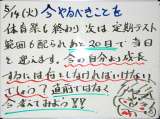 5/14(火) 今やるべきことを
体育祭も終わり 次は定期テスト
範囲も配られあと20日で当日
を迎えます。今の自分より成長
するには何をしなければいけない
でしょう？直前ではなく
今考えてみよう!!